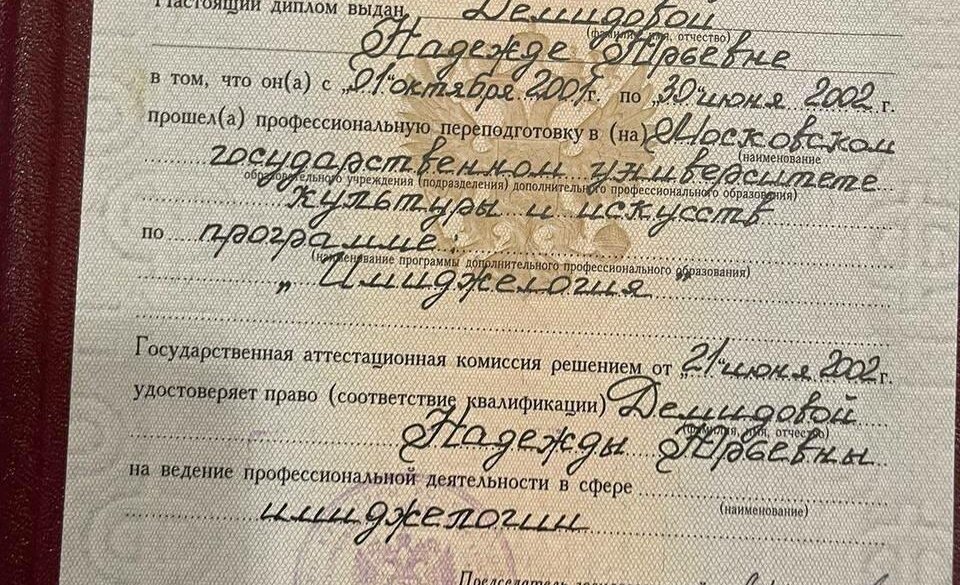 Настоящий диплом выдан Демидовой
(фамилия, имя, отчество)
Надежде Юрьевне
в том, что он(а) с „01“ октября 2001 г. по „30“ июня 2002 г.
прошел(а) профессиональную переподготовку в (на) Московском
(наименование
государственном университете
образовательного учреждения (подразделения) дополнительного профессионального образования)
культуры и искусств
по программе:
(наименование программы дополнительного профессионального образования)
„Имиджелогия“
Государственная аттестационная комиссия решением от „21“ июня 2002 г.
удостоверяет право (соответствие квалификации) Демидовой
(фамилия, имя, отчество)
Надежды Юрьевны
на ведение профессиональной деятельности в сфере
(наименование)
имиджелогии
Председатель